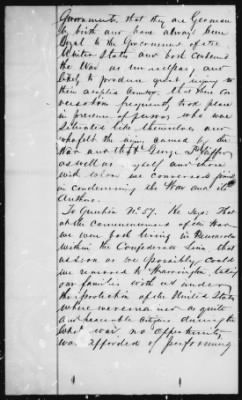 Governments, that they are German
by birth and have always been
loyal to the Government of the
United States and both condemned
the War as needless, and
likely to produce great injury to
their adopted Country. that this con
versation frequently took place
in presence of persons who was
situated like themselves and
who felt the injury caused by the
War and that George
as well as myself and those
with whom we conversed joined
in condemning the War and its
Authors.
To Question No 57. He says: That
at the commencement of the War
we were both living in
within the Confederate lines that
as soon as we possibly could
we removed to Warrington, taking
our families with us under
the protection of the United States
where we remained as quiet
and peaceable citizens during the
whole war no opportunity
was afforded of performing